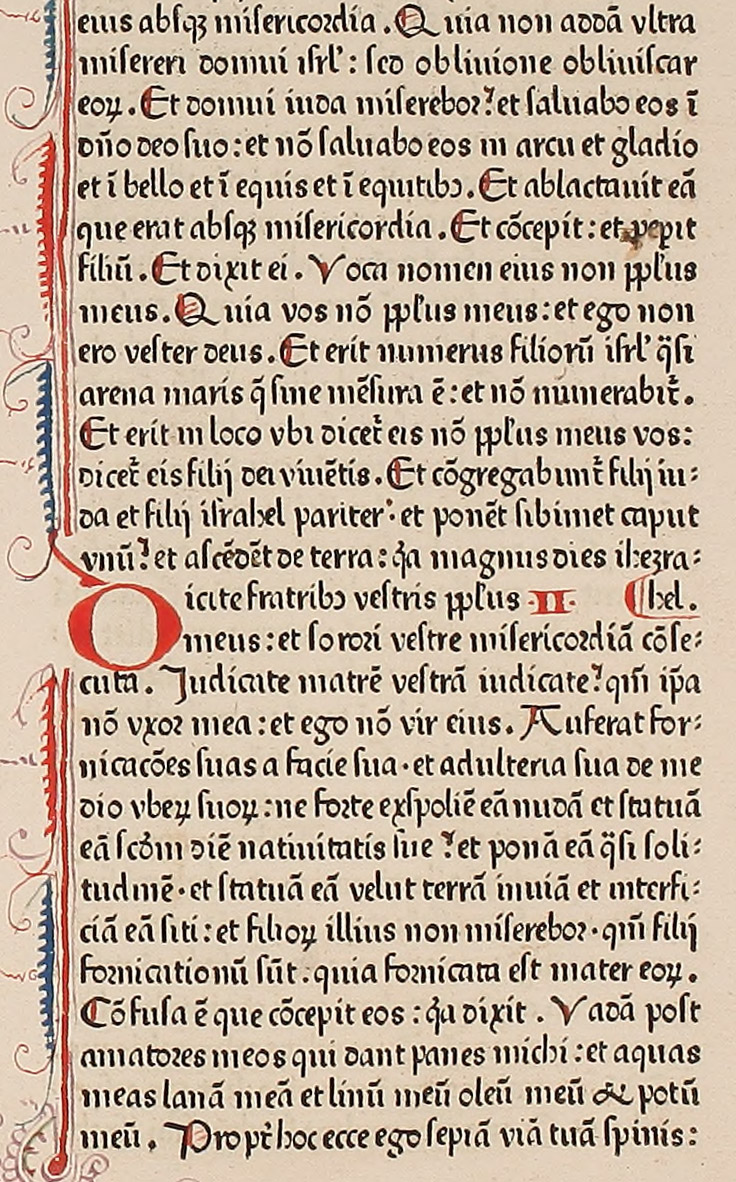 eius absqꝫ misericordia. Quia non addā vltra
misereri domui isrl': sed obliuione obliuiscar
eoꝝ. Et domui iuda miserebor: et saluabo eos ī
dn̄o deo suo: et nō saluabo eos in arcu et gladio
et ī bello et ī equis et ī equitibꝰ. Et ablactauit eā
que erat absqꝫ misericordia. Et cōcepit: et pepit
filiū. Et dixit ei. Voca nomen eius non ppl'us
meus. Quia vos nō ppl'us meus: et ego non
ero vester deus. Et erit numerus filiorū isrl' q̄si
arena maris q̄ sine mēsura ē: et nō numerabit᷑.
Et erit in loco vbi dicet᷑ eis nō ppl'us meus vos:
dicet᷑ eis filij dei viuētis. Et cōgregabunt᷑ filij iu:
da et filij israhel pariter· et ponēt sibimet caput
vnū: et ascēdēt de terra: q̄a magnus dies ihezra:
Dicite fratribꝰ vestris ppl'us ·II· hel.
meus: et sorori vestre misericordiā cōse:
cuta. Judicate matrē vestrā iudicate: qm̄ ip̄a
nō vxor mea: et ego nō vir eius. Auferat for:
nicacōes suas a facie sua· et adulteria sua de me
dio vbeꝝ suoꝝ: ne forte exspoliē eā nudā et statuā
eā scd̄m diē natiuitatis sue: et ponā eā q̄si soli:
tudinē· et statuā eā velut terrā inuiā et interfi:
ciā eā siti: et filioꝝ illius non miserebor· qm̄ filij
fornicationū sūt: quia fornicata est mater eoꝝ.
Cōfusa ē que cōcepit eos: q̄a dixit. Vadā post
amatores meos qui dant panes michi: et aquas
meas lanā meā et linū meū oleū meū & potū
meū. Propt᷑ hoc ecce ego sepiā viā tuā spinis: